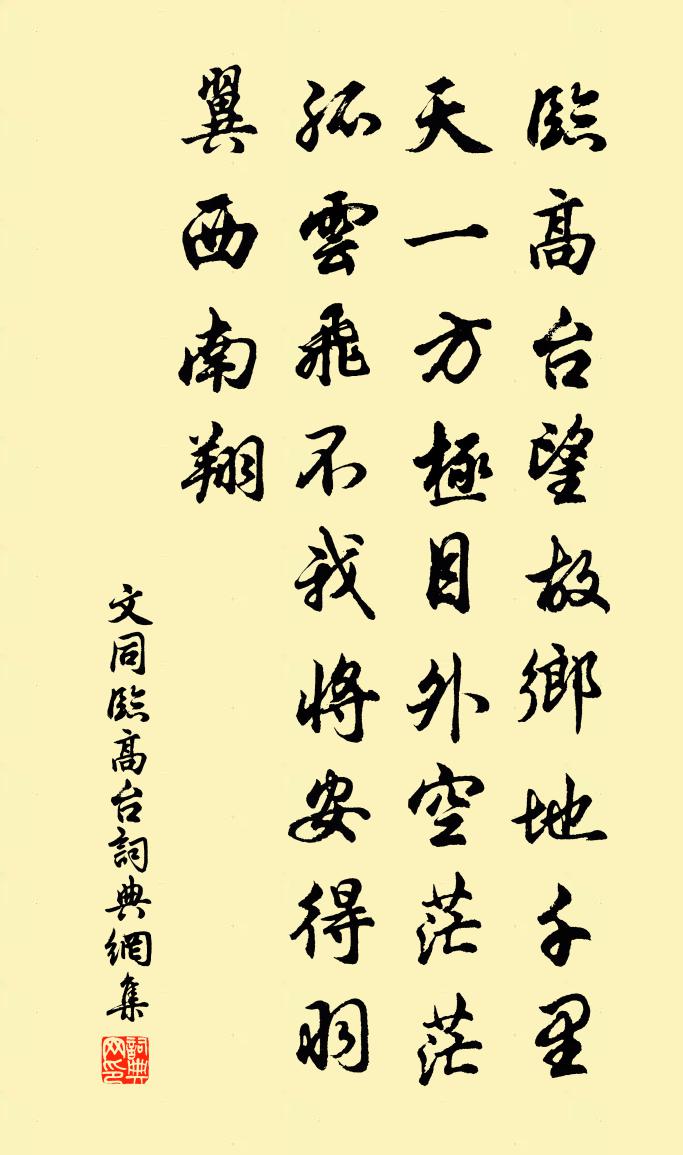 臨高台望故鄉地千里
天一方極目外空茫茫
孤雲飛不我將安得羽
翼西南翔
文同臨高台詞典網集
詞典网印